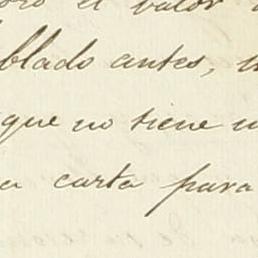 el valor
blado antes,
que no tiene
a carta para